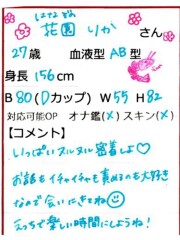 はなぞの
花園 りか さん
27歳 血液型 AB型
身長 156cm
B 80 (Dカップ) W 55 H 82
対応可能OP オナ鑑(×) スキン(×)
【コメント】
いっぱいヌルヌル密着しよ♡
お話もイチャイチャも責めるのも大好き
なので会いにきてね☺
えっちで楽しい時間にしようね!